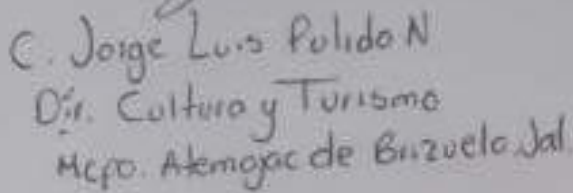 C. Jorge Luis Pulido N
Dir. Cultura y Turismo
Mcpo. Atemajac de Brizuela Jal.